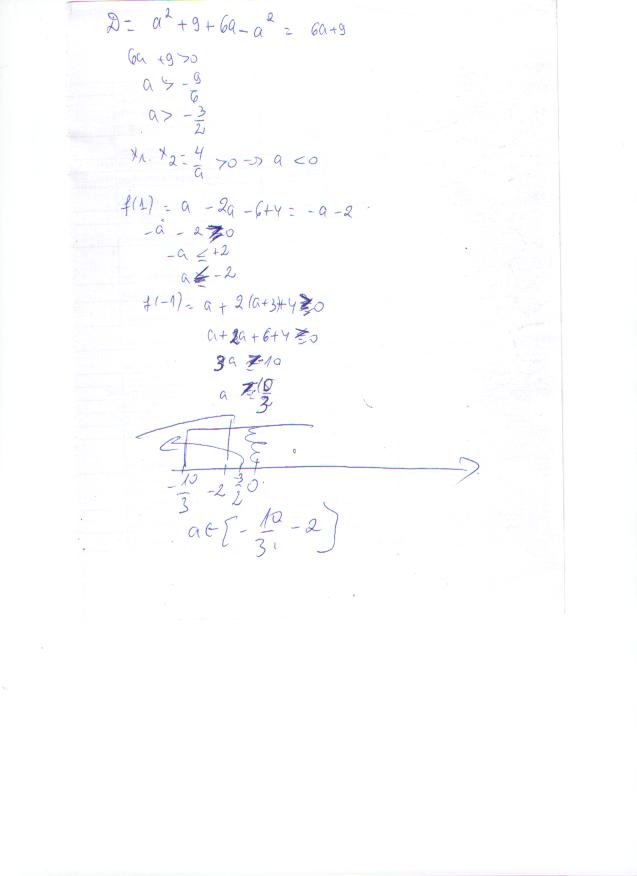 D = a² + 9 + 6a - a² = 6a+9
6a + 9 > 0
a > - 9/6
a > - 3/2
x₁ . x₂ = 4/a > 0 => a < 0
f(1) = a - 2a - 6 + 4 = -a - 2
-a - 2 ≥ 0
-a ≤ +2
a ≤ -2
f(-1) = a + 2(a+3)+4 ≥ 0
a + 2a + 6 + 4 ≥ 0
3a ≥ -10
a ≥ -10/3
- 10/3 -2 3/2 0
a ∈ [- 10/3; -2]